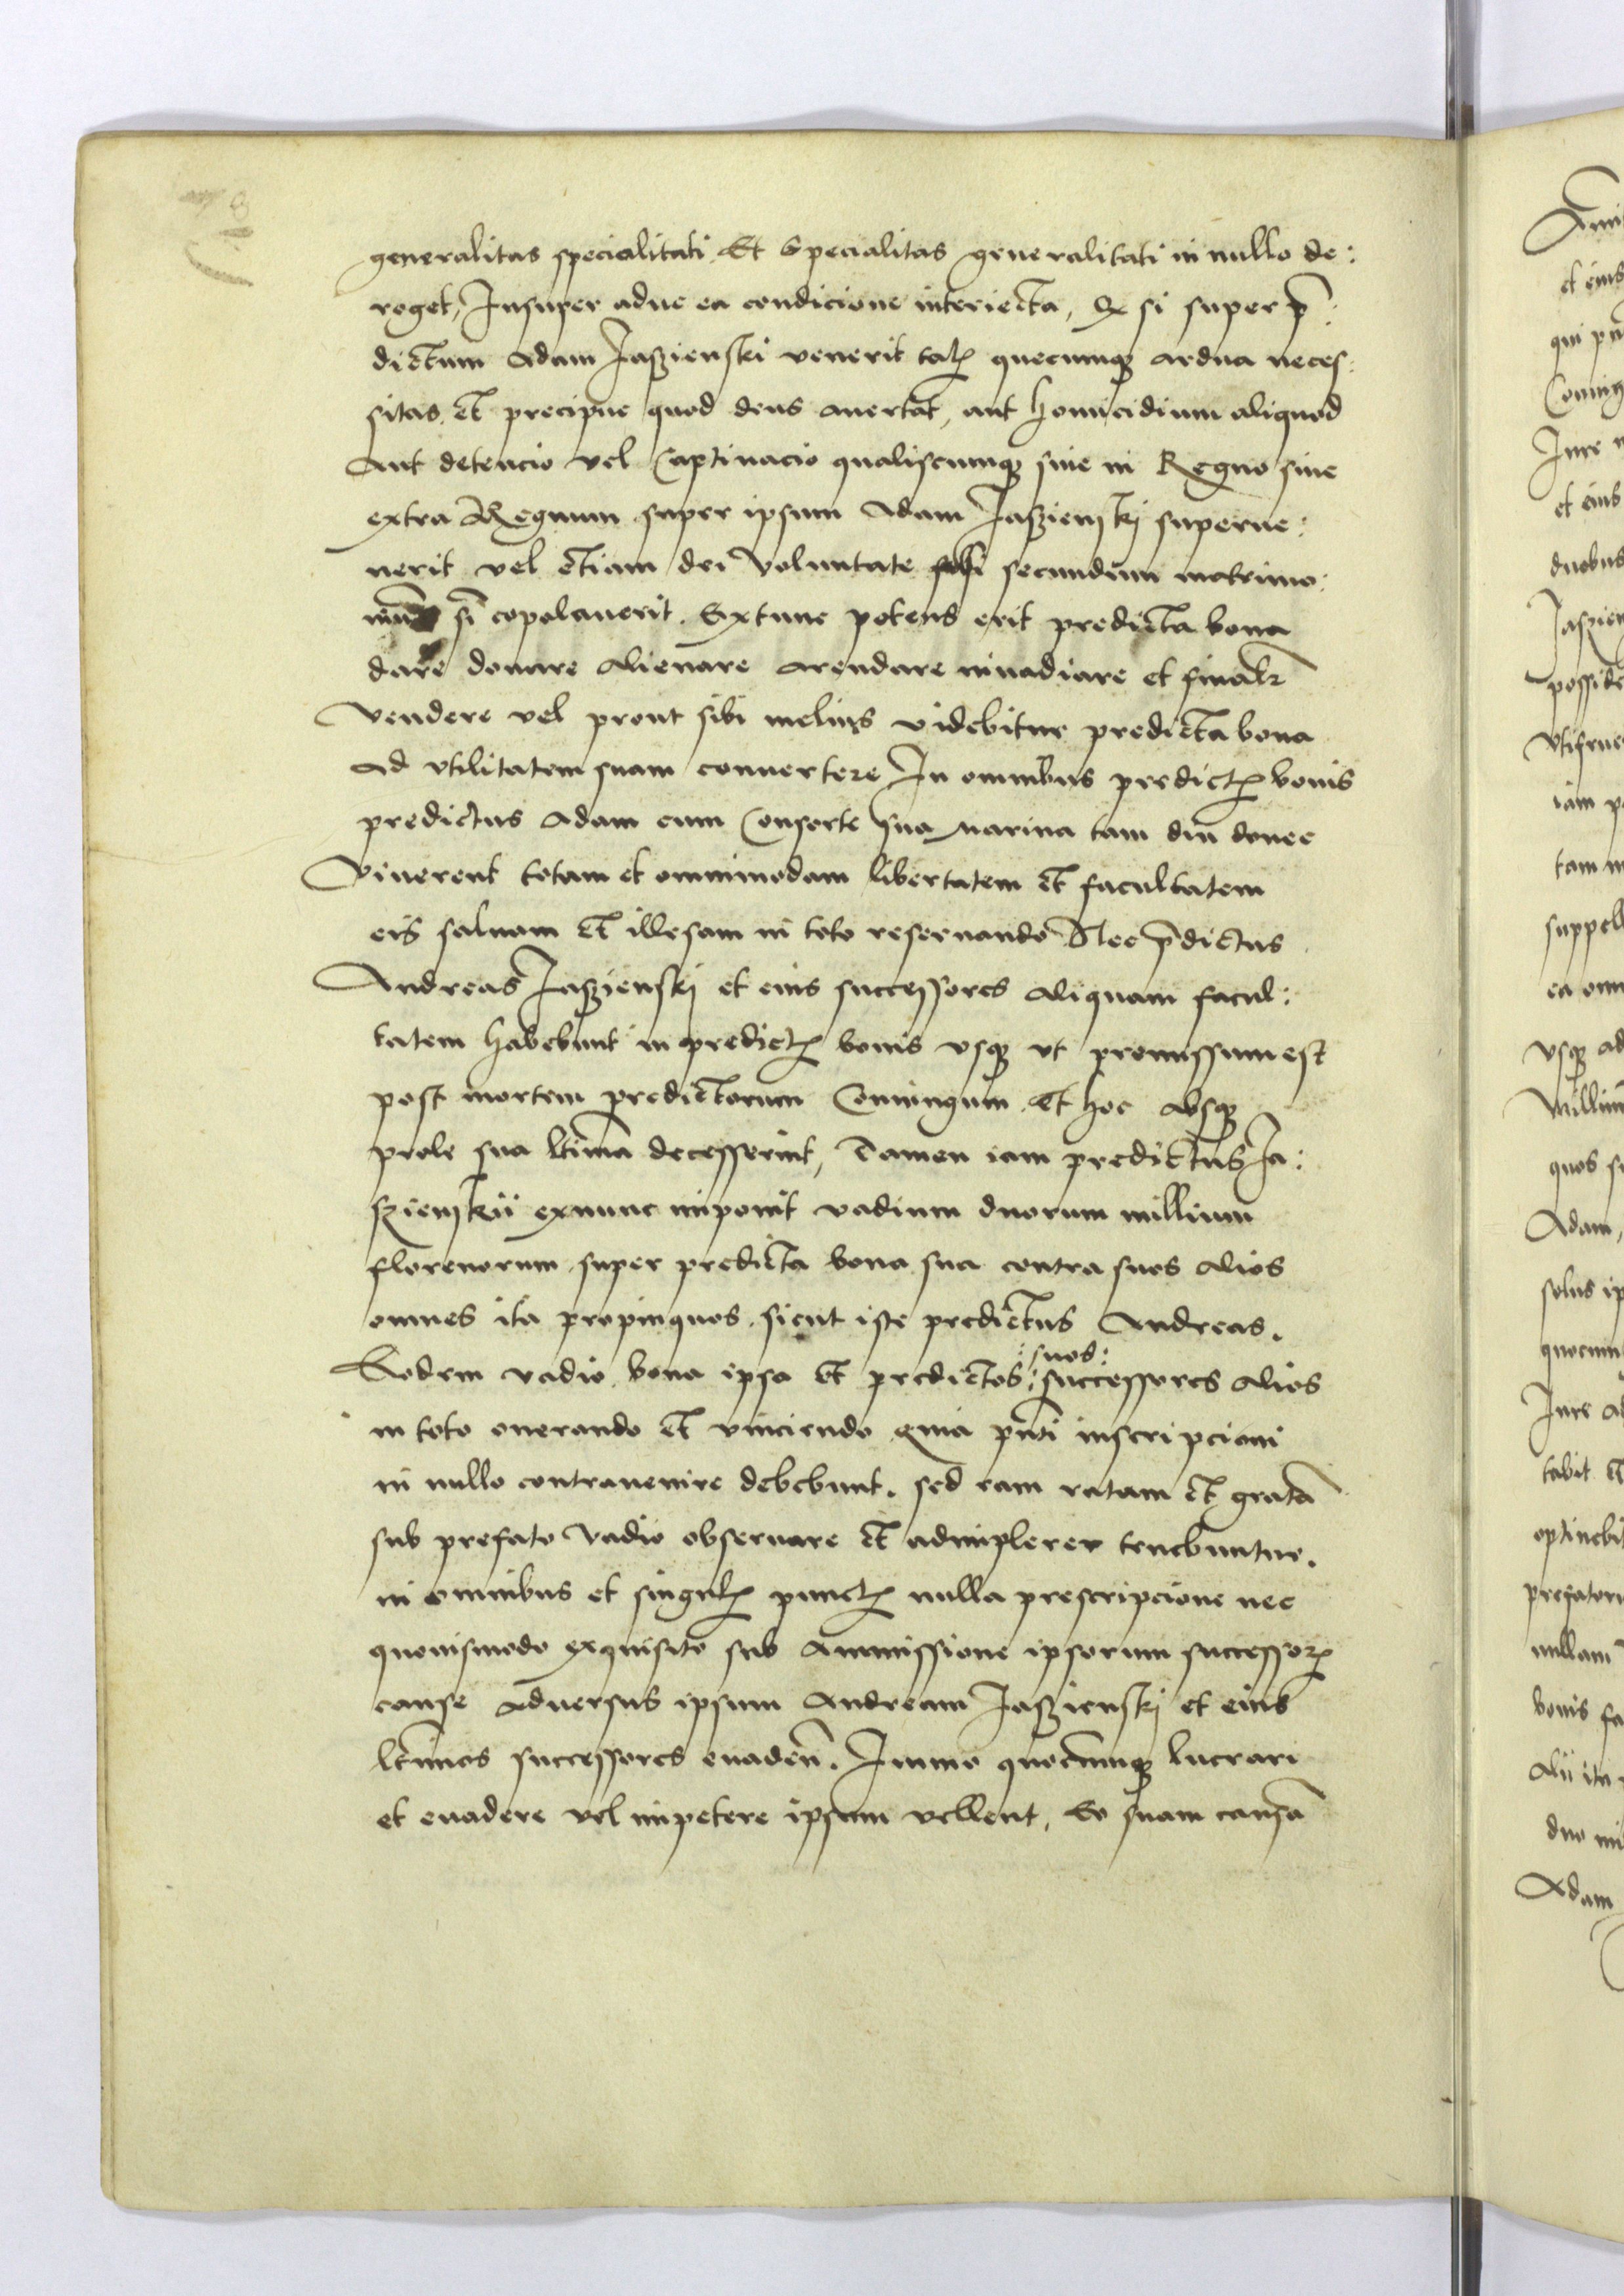 generalitas specialitati Et Specialitas generalitati in nullo de:
roget, Insuper adue ea condicione interiecta, Qz si super p̄:
dictum Adam Jaszienski venerit talꝭ quecumqꝫ ardua neces:
sitas. et precipue quod deus auertat, aut homicidium aliquod
Aut detencio vel Captiuacio qualiscumqꝫ siue in Regno siue
extra Regnum super ipsum Adam Jaszienskj superue:
nerit vel etiam dei Voluntate secundum matrimo:
niū si copolauerit. Extunc potens erit predicta bona
dare donare Alienare arendare inuadiare et finalr
Vendere vel prout sibi melius videbitur predicta bona
Ad vtilitatem suam conuertere In omnibus predictꝭ bonis
predictus Adam cum Consorte sua Marina tam diu donec
Viuerent totam et omnimodam libertatem et facultatem
eis saluam et illesam in toto reseruando Nec p̄dictus
Andreas Jaszienskj et eius successores Aliquam facul:
tatem habebunt in predictꝭ bonis vsqꝫ vt promissum est
post mortem predictorum Coniugum. Et hoc Absqꝫ
prole sua ltima decesserint, Tamen iam predictus Ja:
szienskii exnunc imponit vadium duorum millium
florenorum super predicta bona sua contra suos Alios
omnes ita propinquos sicut iste predictus Andreas.
Eodem vadio bona ipsa et predictos :suos: successores Alios
in toto onerando et vinciendo quia pn̄ti inscripcioni
in nullo contrauenire debebunt. sed eam ratam et gratā
sub prefato Vadio obseruare et adimplerer tenebuntur.
in omnibus et singulꝭ punctꝭ nulla prescripcione nec
quouismodo exquisito sub Ammissione ipsorum successorꝭ
cause Aduersus ipsum Andream Jaszienskj et eius
ltimos successores euadeñ. Immo quocumqꝫ lucrari
et euadere vel impetere ipsum vellent, Eo suam causā